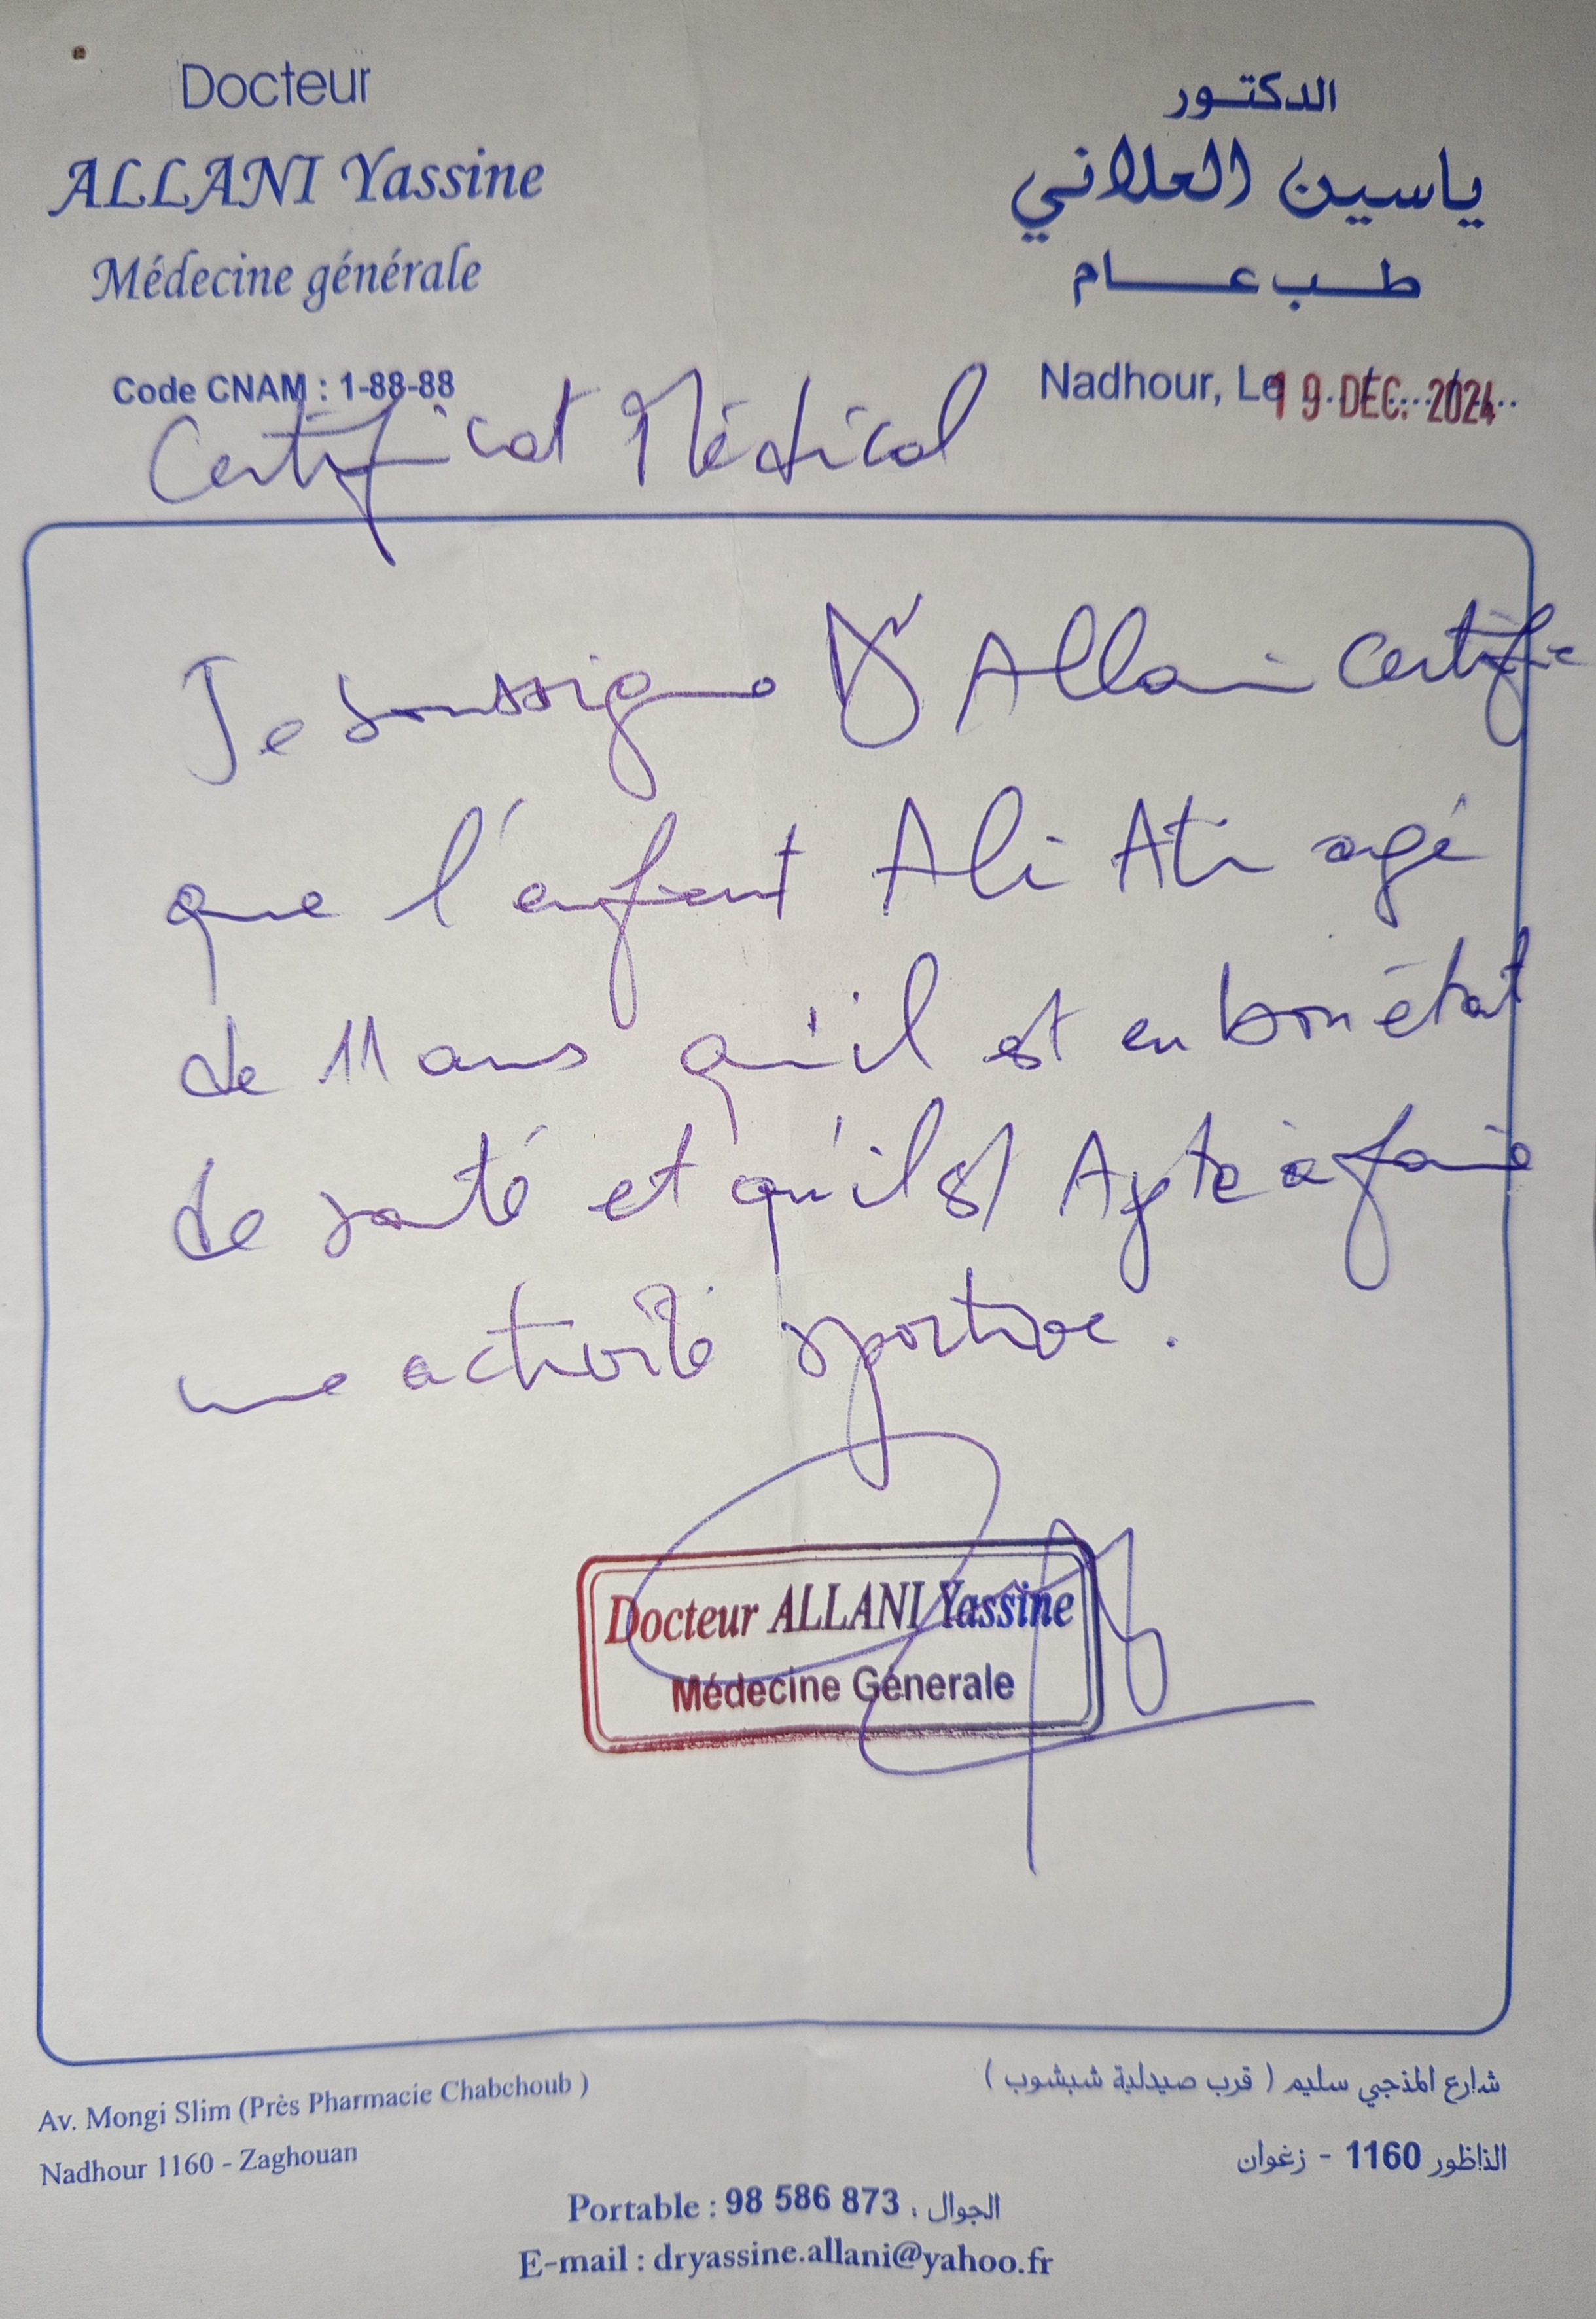 Docteur
ALLANI Yassine
Médecine générale
Code CNAM : 1-88-88
الدكتور
ياسين العلاني
طب عام
Nadhour, Le 19 DEC. 2024
Certificat Médical
Je soussigne Dr Allani certifie
que l'enfant Ali Ati agé
de 11 ans qu'il est en bon état
de santé et qu'il est Apte à faire
une activité sportive.
Docteur ALLANI Yassine
Médecine Génerale
Av. Mongi Slim (Près Pharmacie Chabchoub )
Nadhour 1160 - Zaghouan
شارع المنجي سليم ( قرب صيدلية شبشوب )
الناظور 1160 - زغوان
Portable : 98 586 873 : الجوال
E-mail : dryassine.allani@yahoo.fr